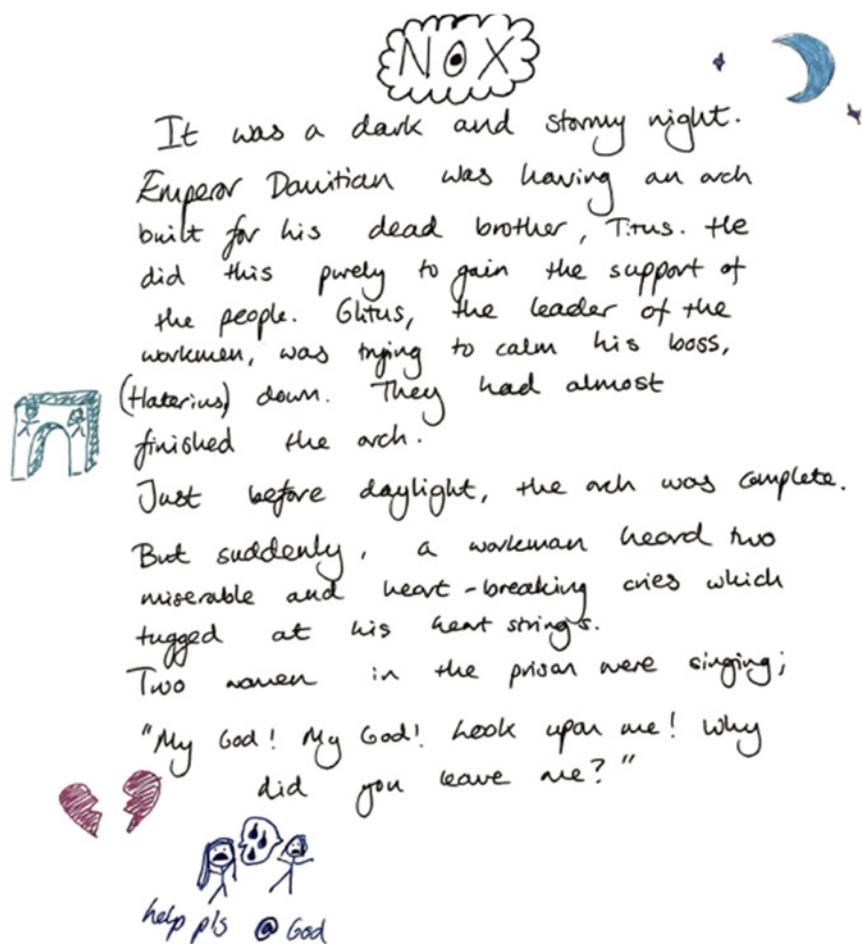 NOX
It was a dark and stormy night.
Emperor Domitian was having an arch
built for his dead brother, Titus. He
did this purely to gain the support of
the people. Glitus, the leader of the
workmen, was trying to calm his boss,
(Haterius) down. They had almost
finished the arch.
Just before daylight, the arch was complete.
But suddenly, a workman heard two
miserable and heart-breaking cries which
tugged at his heart strings.
Two women in the prison were singing;
"My God! My God! Look upon me! Why
did you leave me?"
help pls @ God